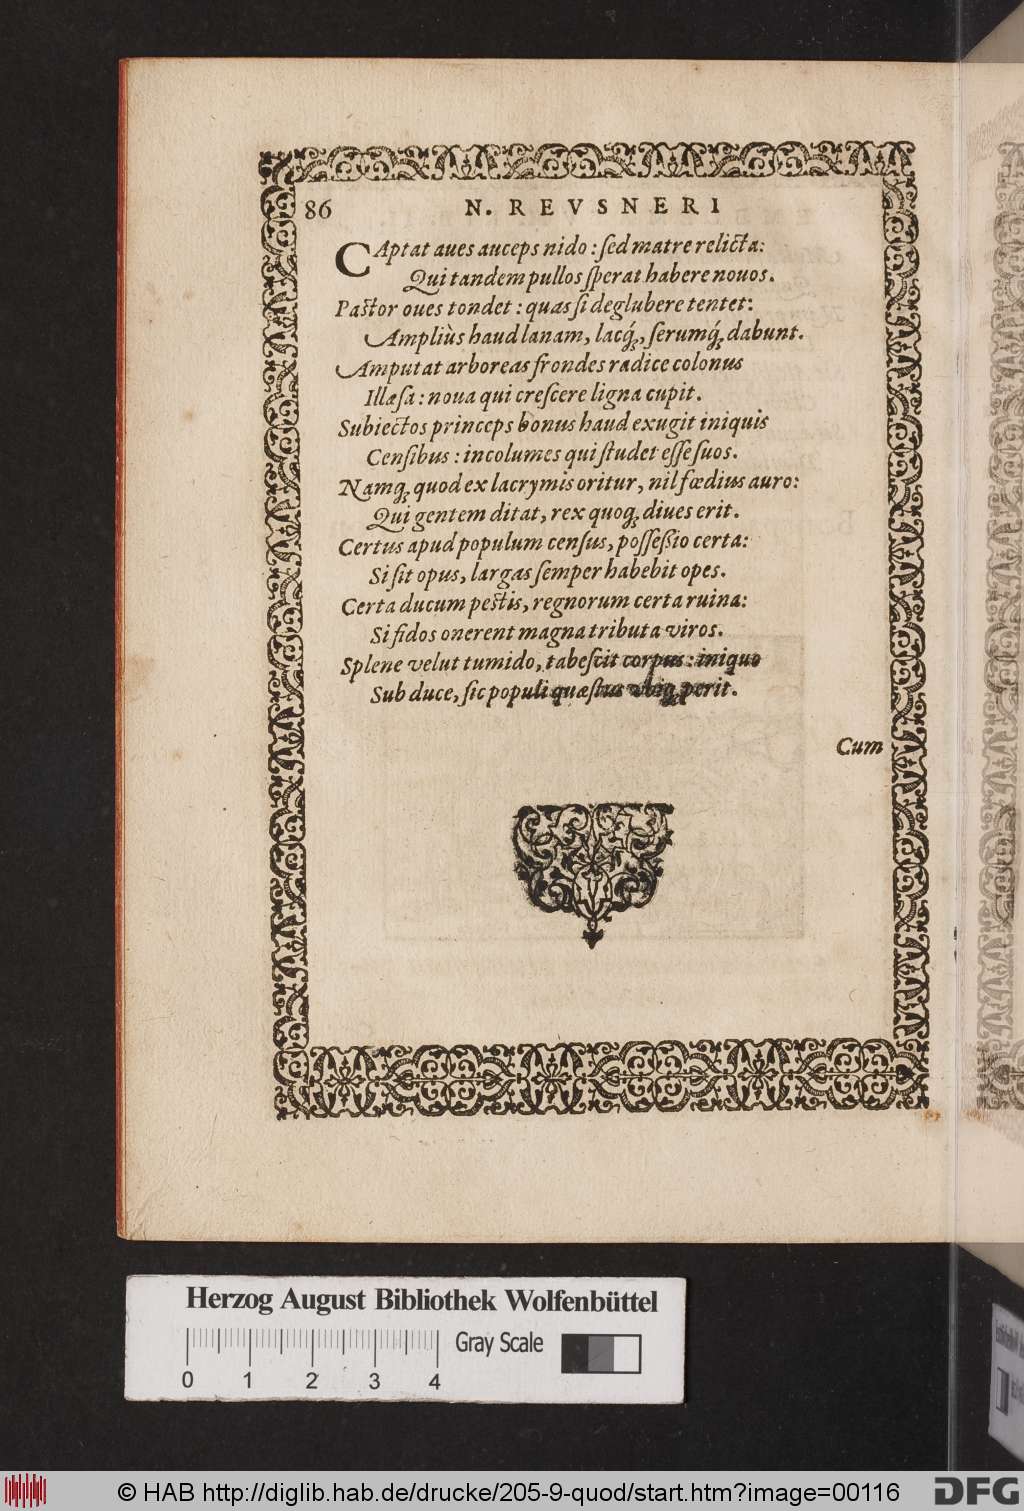 86 N. REVSNERI
CAptat aues auceps nido: ſed matre relicta:
Qui tandem pullos ſperat habere nouos.
Paſtor oues tondet: quas ſi deglubere tentet:
Ampliùs haud lanam, lacq́;, ſerumq́; dabunt.
Amputat arboreas frondes radice colonus
Illæſa: noua qui creſcere ligna cupit.
Subiectos princeps bonus haud exugit iniquis
Cenſibus: incolumes qui ſtudet eſſe ſuos.
Namq; quod ex lacrymis oritur, nil fœdius auro:
Qui gentem ditat, rex quoq; diues erit.
Certus apud populum cenſus, poſſeßio certa:
Si ſit opus, largas ſemper habebit opes.
Certa ducum peſtis, regnorum certa ruina:
Si fidos onerent magna tributa viros.
Splene velut tumido, tabeſcit corpus: iniquo
Sub duce, ſic populi quæſtus vbiq; perit.
Cum
Herzog August Bibliothek Wolfenbüttel
Gray Scale
0 1 2 3 4
© HAB http://diglib.hab.de/drucke/205-9-quod/start.htm?image=00116
DFG